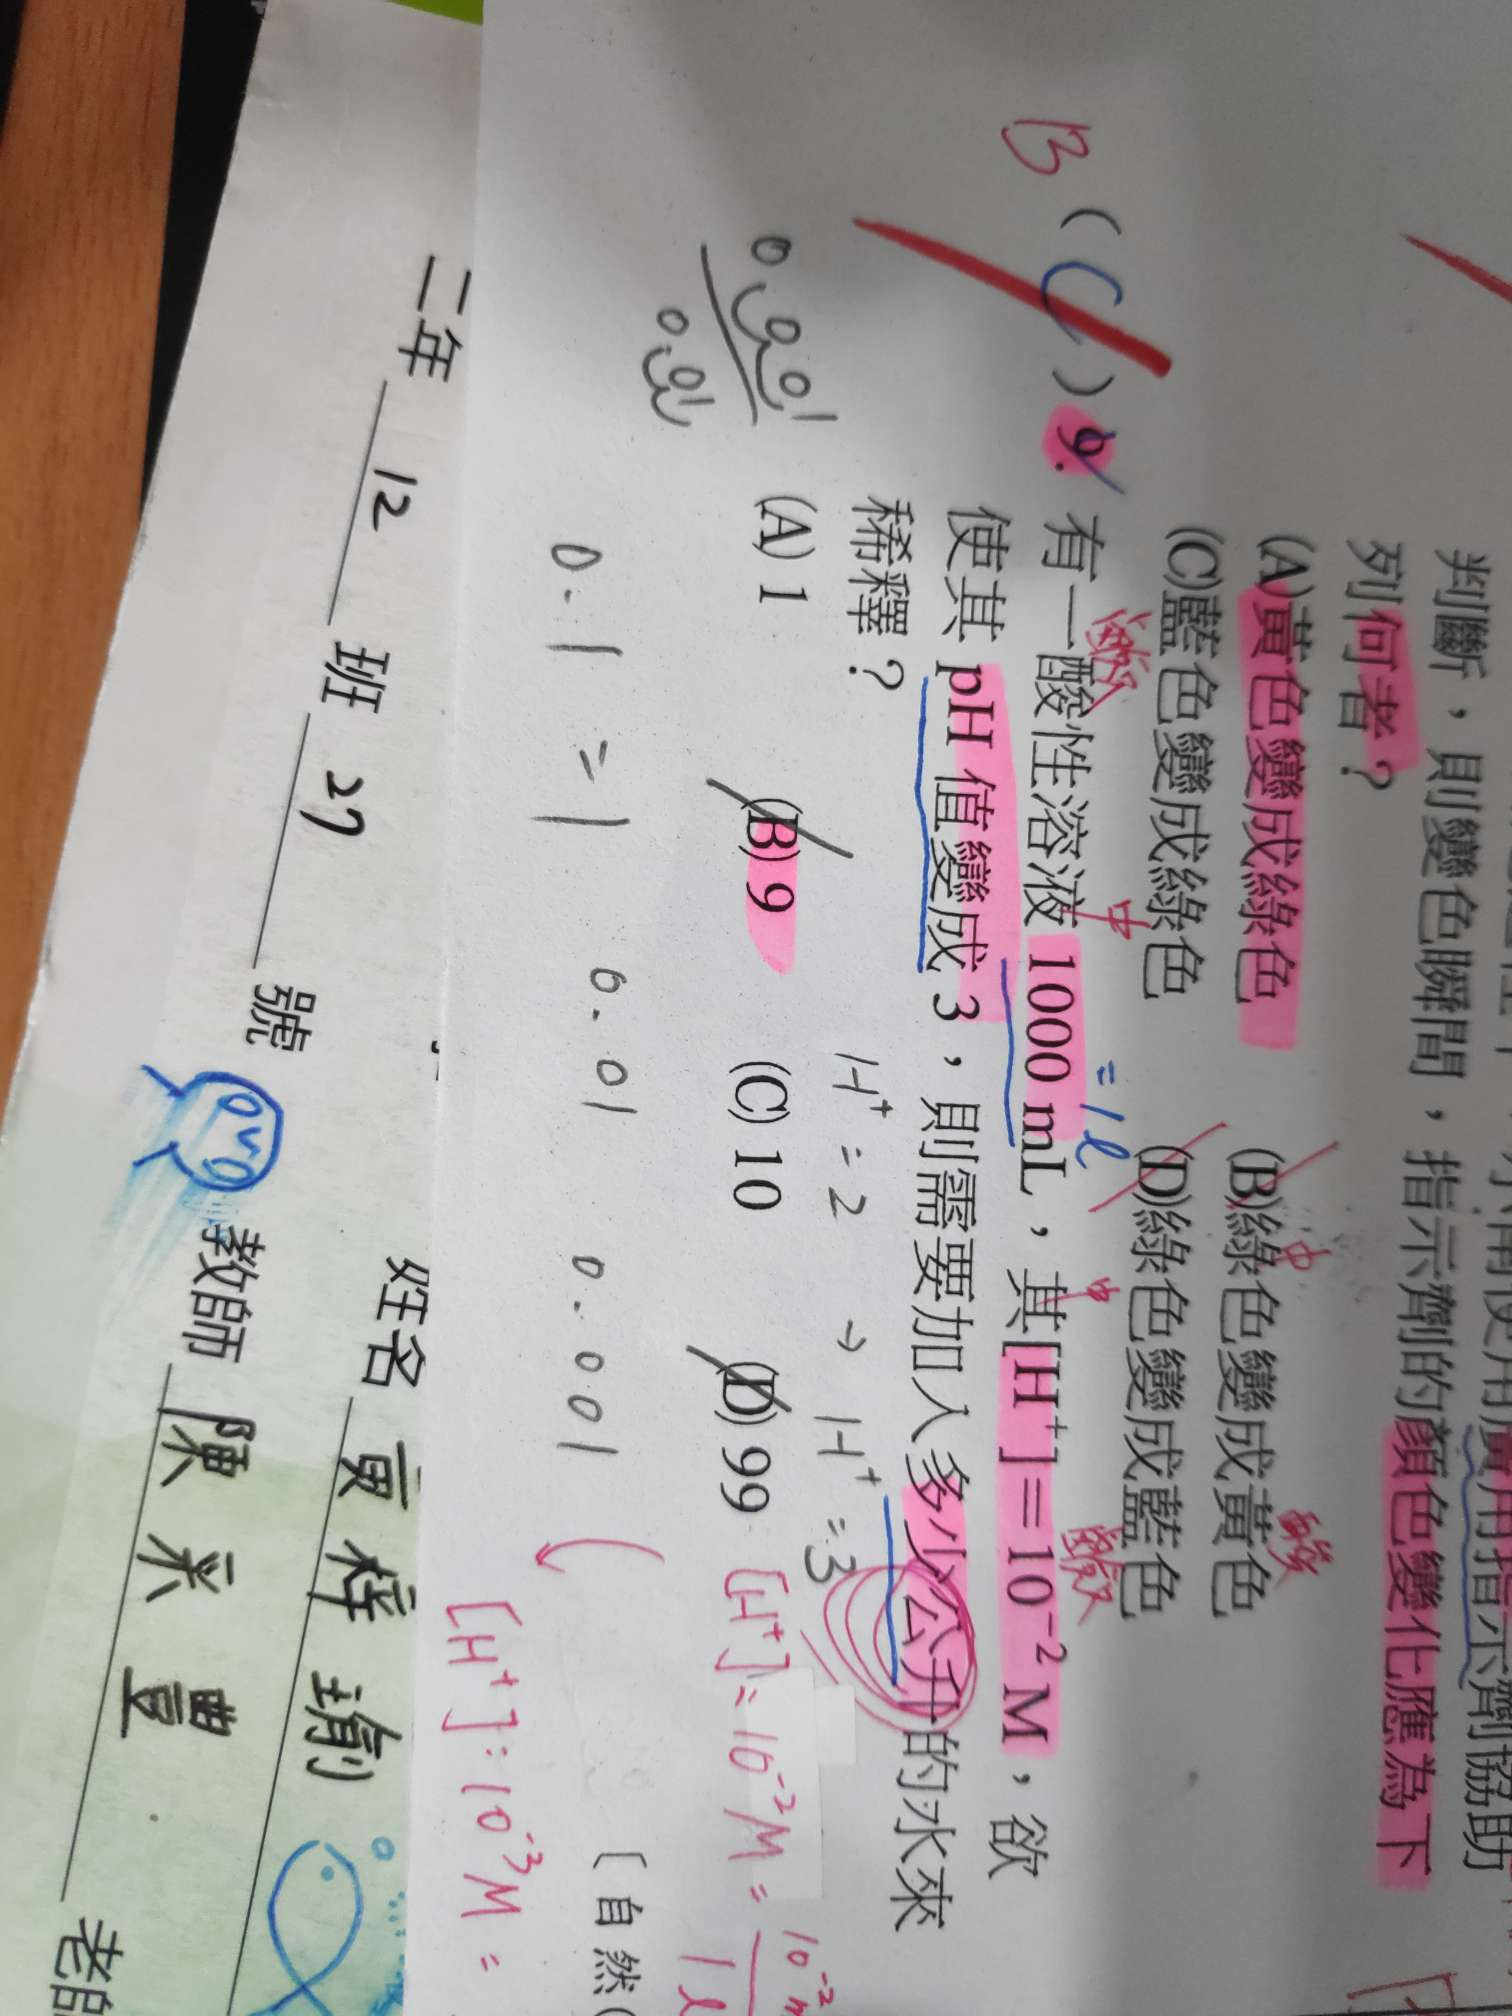 判斷，則變色瞬間，指示劑的顏色變化應為下
列何者？
(A)黃色變成綠色 (B)綠色變成黃色
(C)藍色變成綠色 (D)綠色變成藍色
中 酸
鹼 中 中 鹼
B ( C ) 9. 有一酸性溶液 1000 mL，其[H⁺]＝10⁻² M，欲
=1ℓ
使其 pH 值變成 3，則需要加入多少公升的水來
稀釋？
H⁺=2 → H⁺=3
(A) 1 (B) 9 (C) 10 (D) 99
[H⁺]=10⁻²M=
1ℓ
0.001
0.01
0.1 = 1 0.01 0.001
[H⁺]:10⁻³M=
[自然
二年 12 班 27 號
姓名
教師 陳